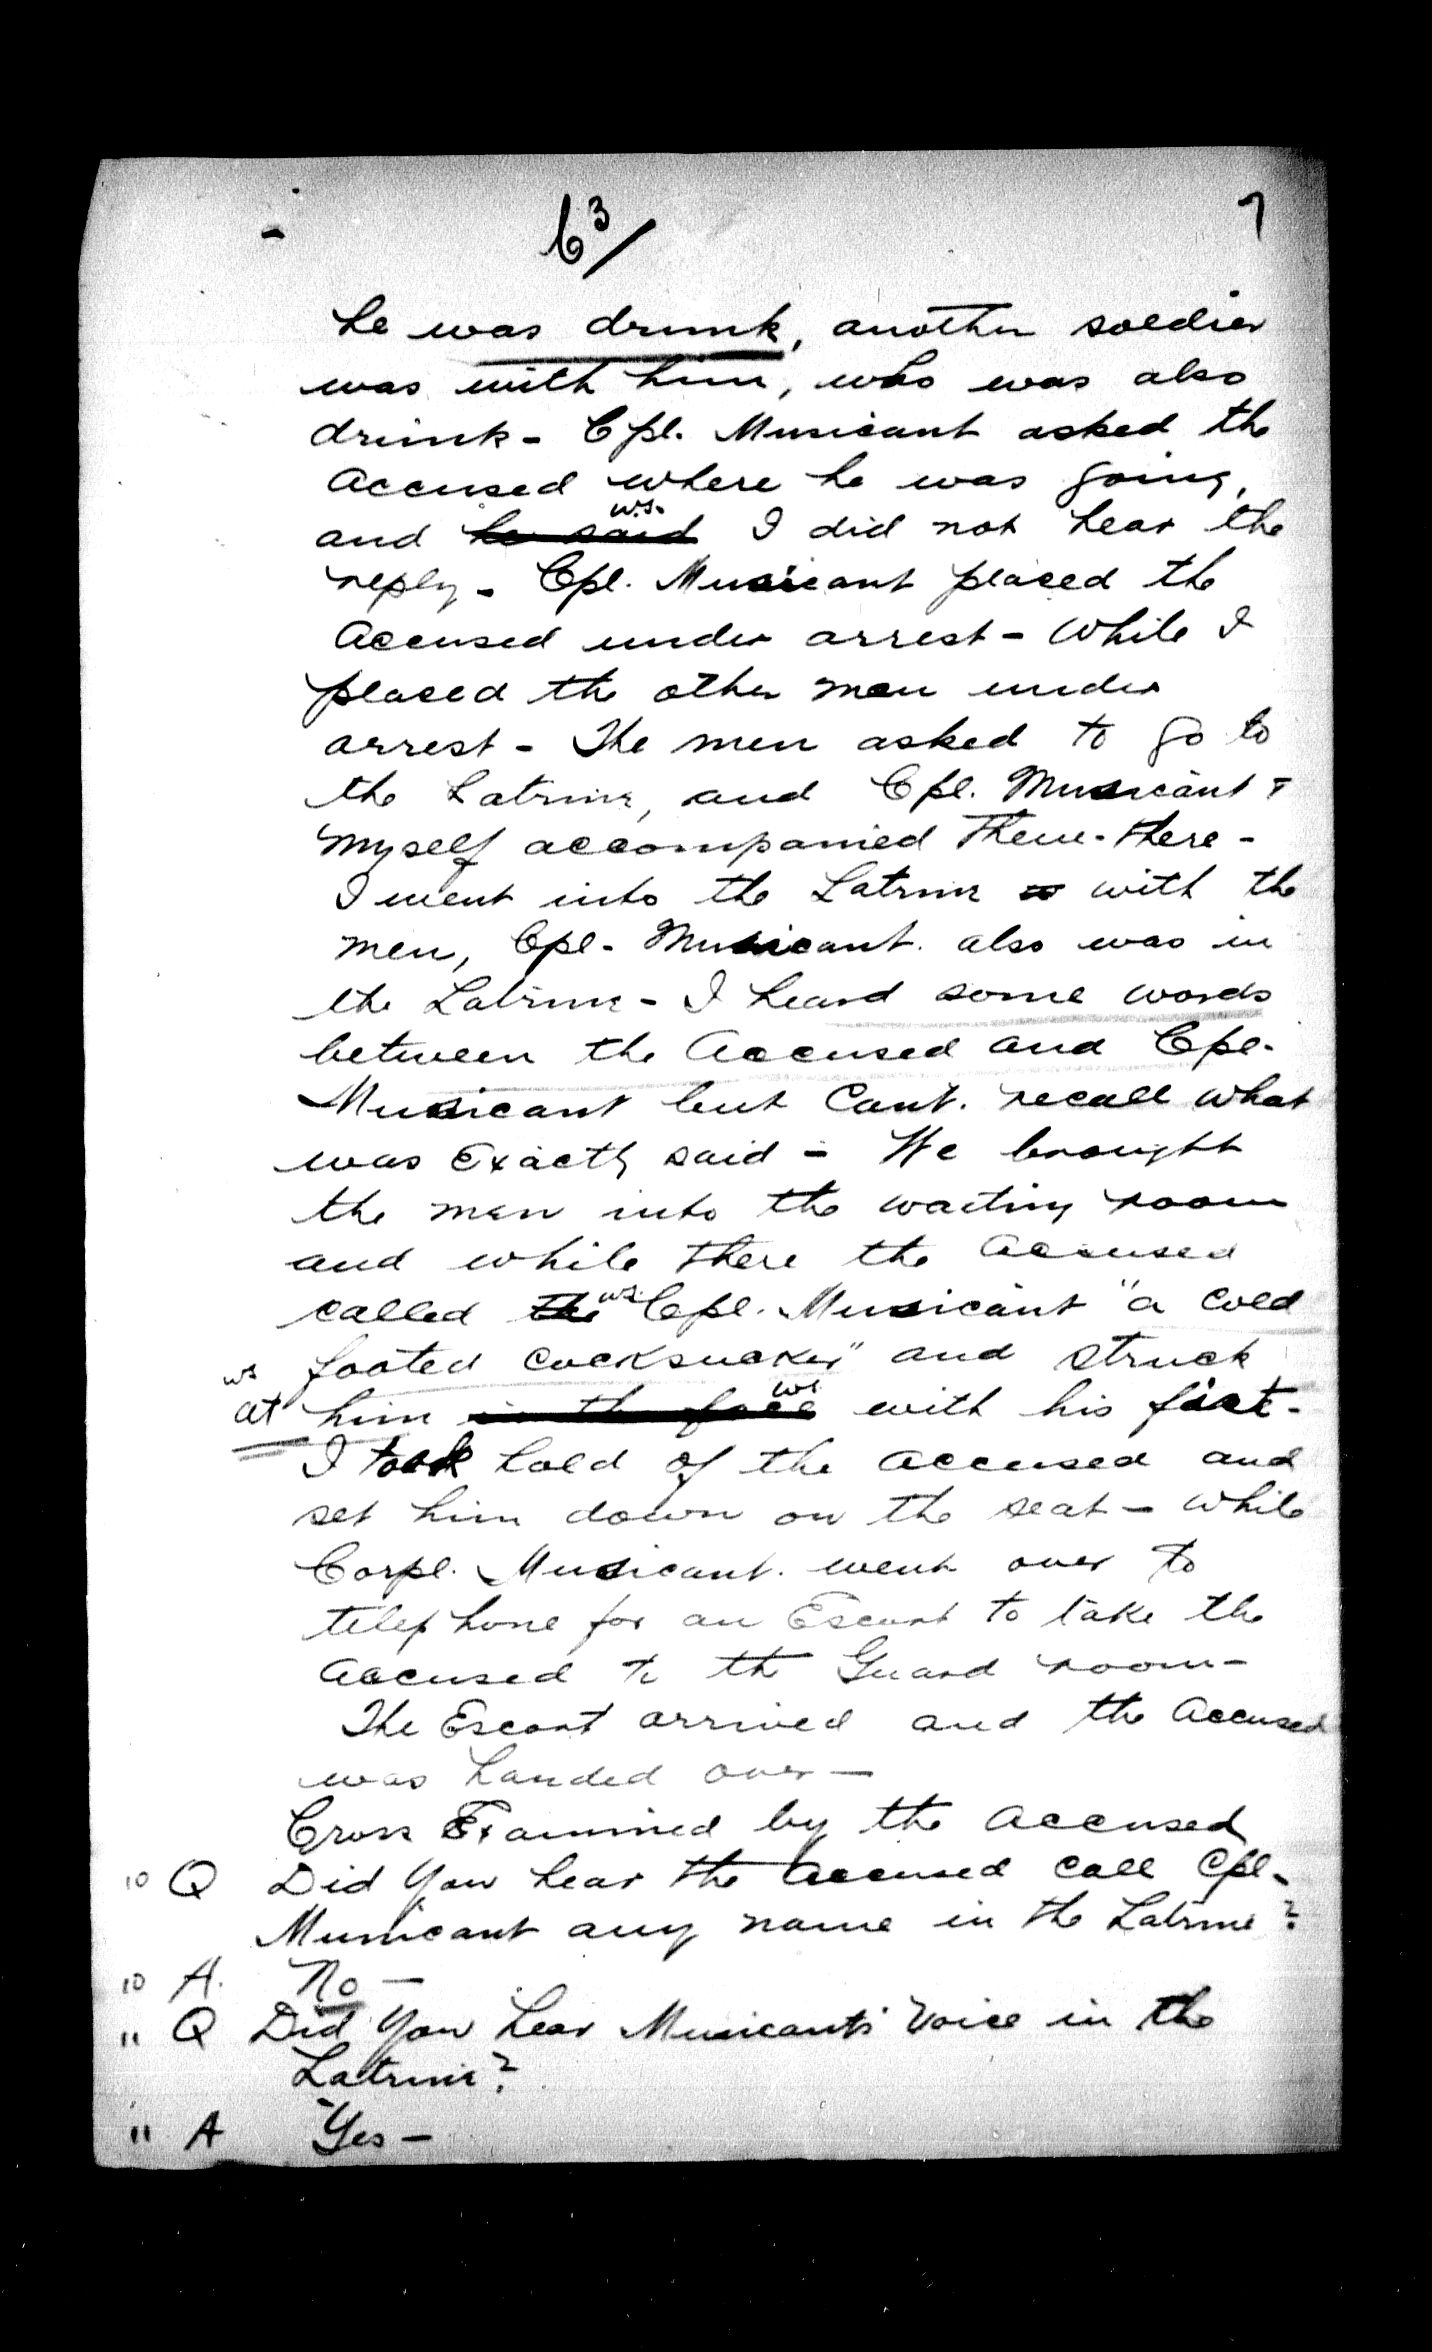 63/
7
he was drunk, another soldier
was with him, who was also
drunk - Cpl. Musicant asked the
Accused where he was going,
w.s.
and he said I did not hear the
reply - Cpl. Musicant placed the
Accused under arrest - While I
placed the other man under
arrest - The men asked to go to
the Latrine, and Cpl. Musicant &
myself accompanied them - there -
I went into the Latrine with the
men, Cpl - Musicant. also was in
the Latrine - I heard some words
between the Accused and Cpl -
Musicant but Cant. recall what
was Exactly said - We brought
the men into the waiting room
and while there the Accused
called the ws. Cpl. Musicant "a cold
footed cocksucker" and struck
ws
at him in the face ws with his fist -
I took hold of the accused and
set him down on the seat - while
Corpl. Musicant. went over to
telephone for an Escort to take the
accused to the Guard room -
The Escort arrived and the Accused
was handed over -
Cross Examined by the accused
10 Q Did You hear the Accused call Cpl -
Musicant any name in the Latrine?
10 A. No -
11 Q Did You hear Musicants' Voice in the
Latrine?
11 A Yes -